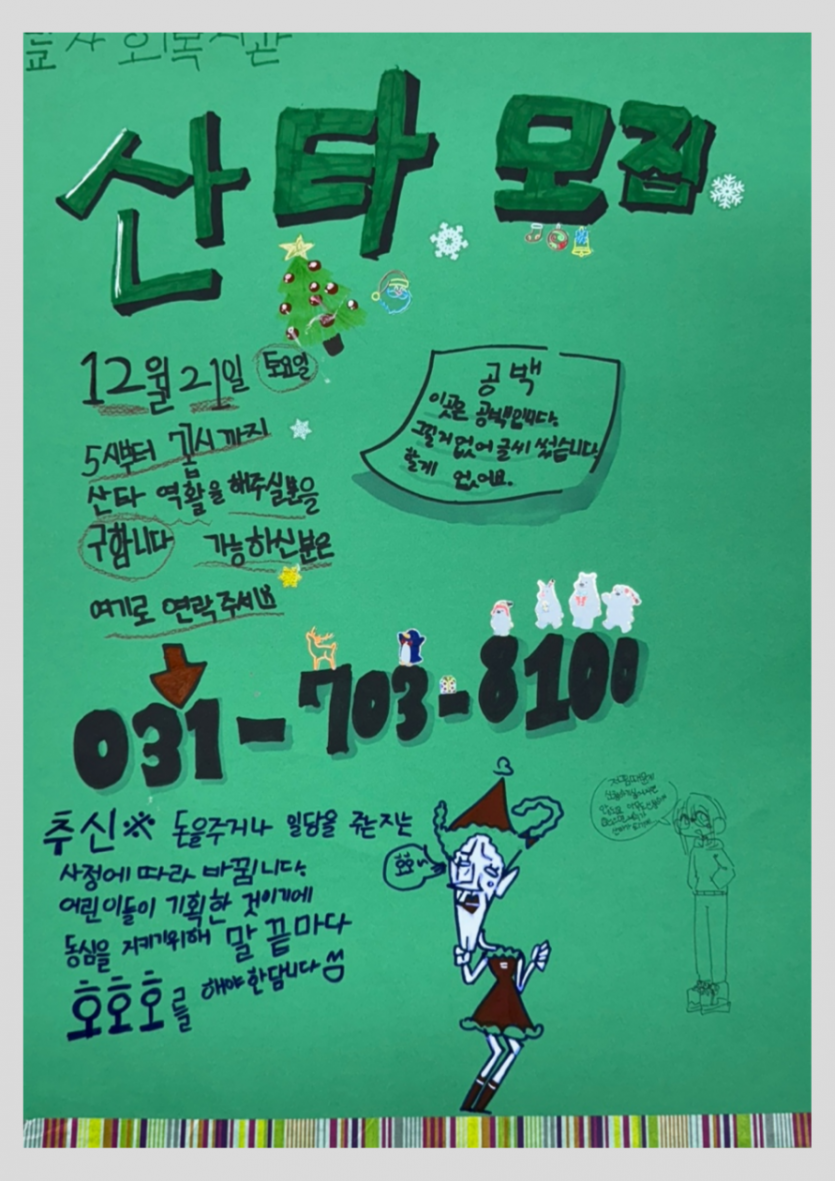 사회복지관
산타 모집
12월 21일 토요일
5시부터 7시까지
산타 역활을 해주실분을
구합니다 가능하신분은
여기로 연락주세요
공백
이곳은 공백입니다.
그릴게 없어 글씨 썼습니다.
할게 없어요.
031-703-8100
추신※ 돈을주거나 일당을 주는지는
사정에 따라 바뀝니다.
어린이들이 기획한 것이기에
동심을 지키기위해 말 끝마다
호호호를 해야한답니다